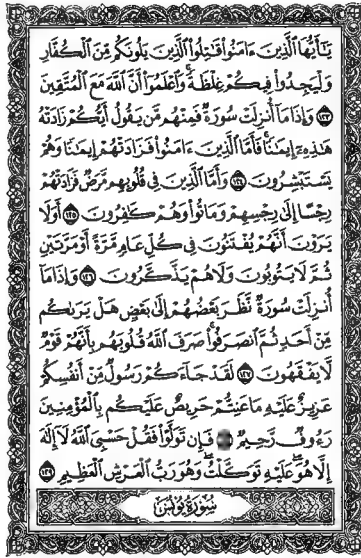 يَٰٓأَيُّهَا ٱلَّذِينَ ءَامَنُوا۟ قَٰتِلُوا۟ ٱلَّذِينَ يَلُونَكُم مِّنَ ٱلْكُفَّارِ
وَلْيَجِدُوا۟ فِيكُمْ غِلْظَةً ۚ وَٱعْلَمُوٓا۟ أَنَّ ٱللَّهَ مَعَ ٱلْمُتَّقِينَ
١٢٣ وَإِذَا مَآ أُنزِلَتْ سُورَةٌ فَمِنْهُم مَّن يَقُولُ أَيُّكُمْ زَادَتْهُ
هَٰذِهِۦٓ إِيمَٰنًا ۚ فَأَمَّا ٱلَّذِينَ ءَامَنُوا۟ فَزَادَتْهُمْ إِيمَٰنًا وَهُمْ
يَسْتَبْشِرُونَ ١٢٤ وَأَمَّا ٱلَّذِينَ فِى قُلُوبِهِم مَّرَضٌ فَزَادَتْهُمْ
رِجْسًا إِلَىٰ رِجْسِهِمْ وَمَاتُوا۟ وَهُمْ كَٰفِرُونَ ١٢٥ أَوَلَا
يَرَوْنَ أَنَّهُمْ يُفْتَنُونَ فِى كُلِّ عَامٍ مَّرَّةً أَوْ مَرَّتَيْنِ
ثُمَّ لَا يَتُوبُونَ وَلَا هُمْ يَذَّكَّرُونَ ١٢٦ وَإِذَا مَآ
أُنزِلَتْ سُورَةٌ نَّظَرَ بَعْضُهُمْ إِلَىٰ بَعْضٍ هَلْ يَرَىٰكُم
مِّنْ أَحَدٍ ثُمَّ ٱنصَرَفُوا۟ ۚ صَرَفَ ٱللَّهُ قُلُوبَهُم بِأَنَّهُمْ قَوْمٌ
لَّا يَفْقَهُونَ ١٢٧ لَقَدْ جَآءَكُمْ رَسُولٌ مِّنْ أَنفُسِكُمْ
عَزِيزٌ عَلَيْهِ مَا عَنِتُّمْ حَرِيصٌ عَلَيْكُم بِٱلْمُؤْمِنِينَ
رَءُوفٌ رَّحِيمٌ فَإِن تَوَلَّوْا۟ فَقُلْ حَسْبِىَ ٱللَّهُ لَآ إِلَٰهَ
إِلَّا هُوَ ۖ عَلَيْهِ تَوَكَّلْتُ ۖ وَهُوَ رَبُّ ٱلْعَرْشِ ٱلْعَظِيمِ ١٢٩
سُورَةُ يُونُسَ